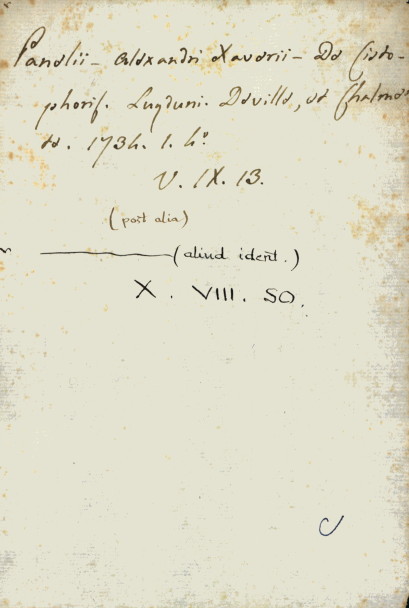 Panelii - Alexandri Xaverii - De Cisto-
phoris. Lugduni. Deville, et Chalme
te. 1734. 1. 4º.
V. IX. 13.
(post alia)
(aliud ident.)
X. VIII. 50.